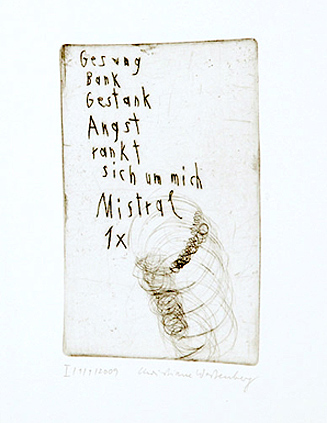 Gesung
Bank
Gestank
Angst
rankt
sich um mich
Mistral
1x
I/1/1/2009 Christiane Westenberg